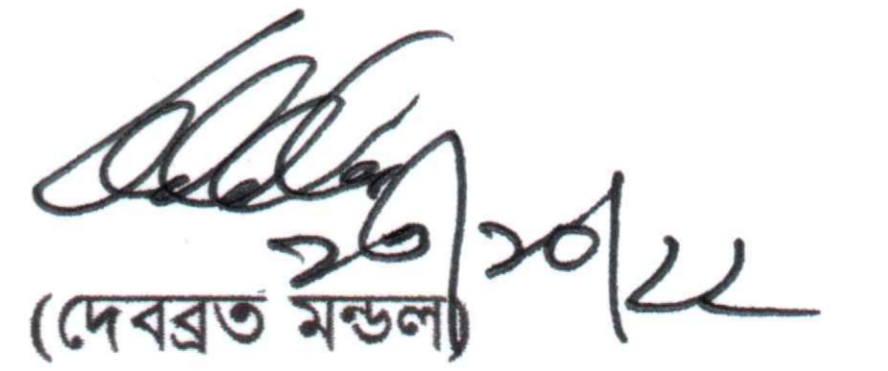 ২৩/১০/২২
(দেবব্রত মন্ডল)